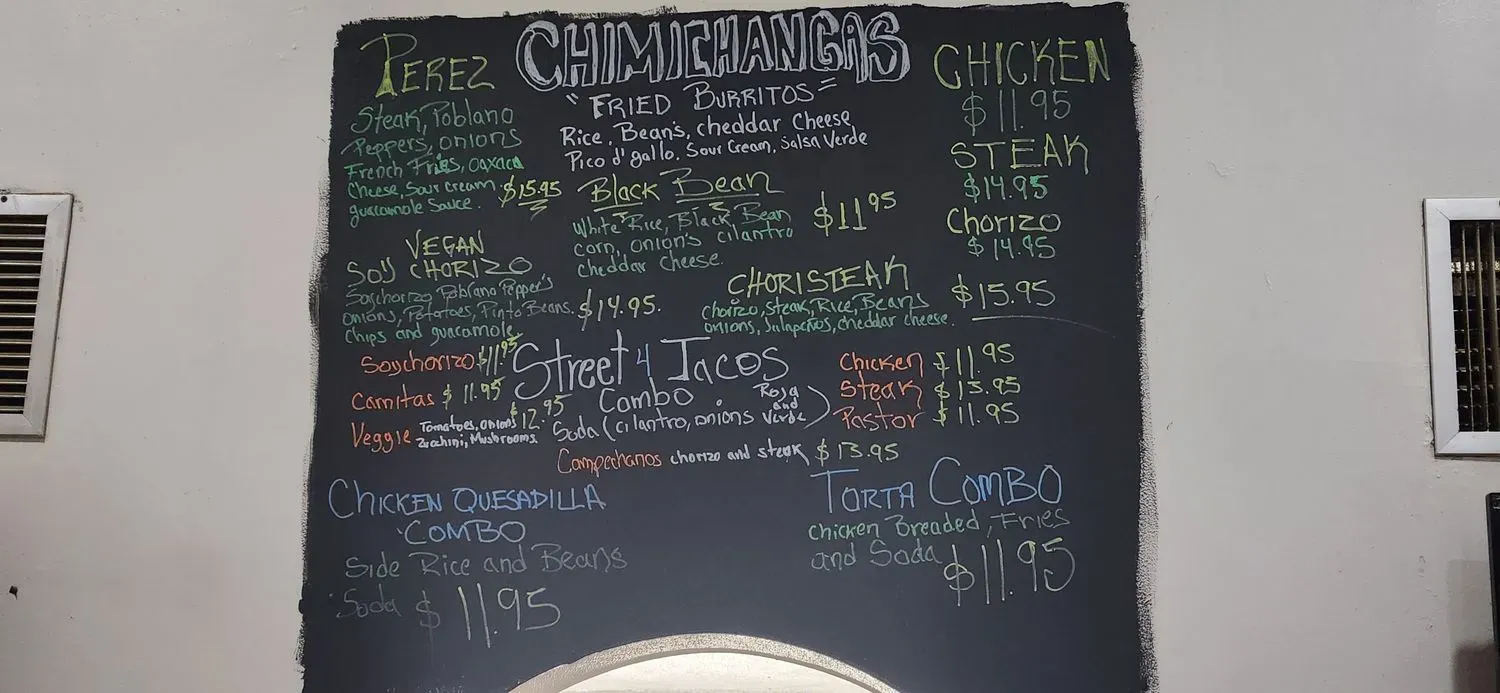 PEREZ
Steak, Poblano
Peppers, onions
French Fries, oaxaca
Cheese, Sour cream
guacamole Sauce. $15.95
CHIMICHANGAS
"FRIED BURRITOS"
Rice, Bean's, cheddar Cheese
Pico d' gallo. Sour Cream, Salsa Verde
CHICKEN
$11.95
STEAK
$14.95
Chorizo
$14.95
Black Bean
White Rice, Black Bean
corn, onion's cilantro
cheddar cheese.
$11.95
VEGAN
SOY CHORIZO
Soychorizo Poblano Pepper's
onions, Potatoes, Pinto Beans. $14.95.
chips and guacamole
CHORISTEAK
chorizo, steak, Rice, Beans
onions, Jalapeños, cheddar cheese.
$15.95
Street 4 Tacos
Combo
Soda (cilantro, onions Roja and Verde)
Soychorizo $11.95
Carnitas $11.95
Veggie Tomatoes, onions $12.95
Zucchini, Mushrooms.
Chicken $11.95
Steak $13.95
Pastor $11.95
Campechanos chorizo and steak $13.95
CHICKEN QUESADILLA
COMBO
Side Rice and Beans
Soda $11.95
TORTA COMBO
Chicken Breaded, Fries
and Soda $11.95